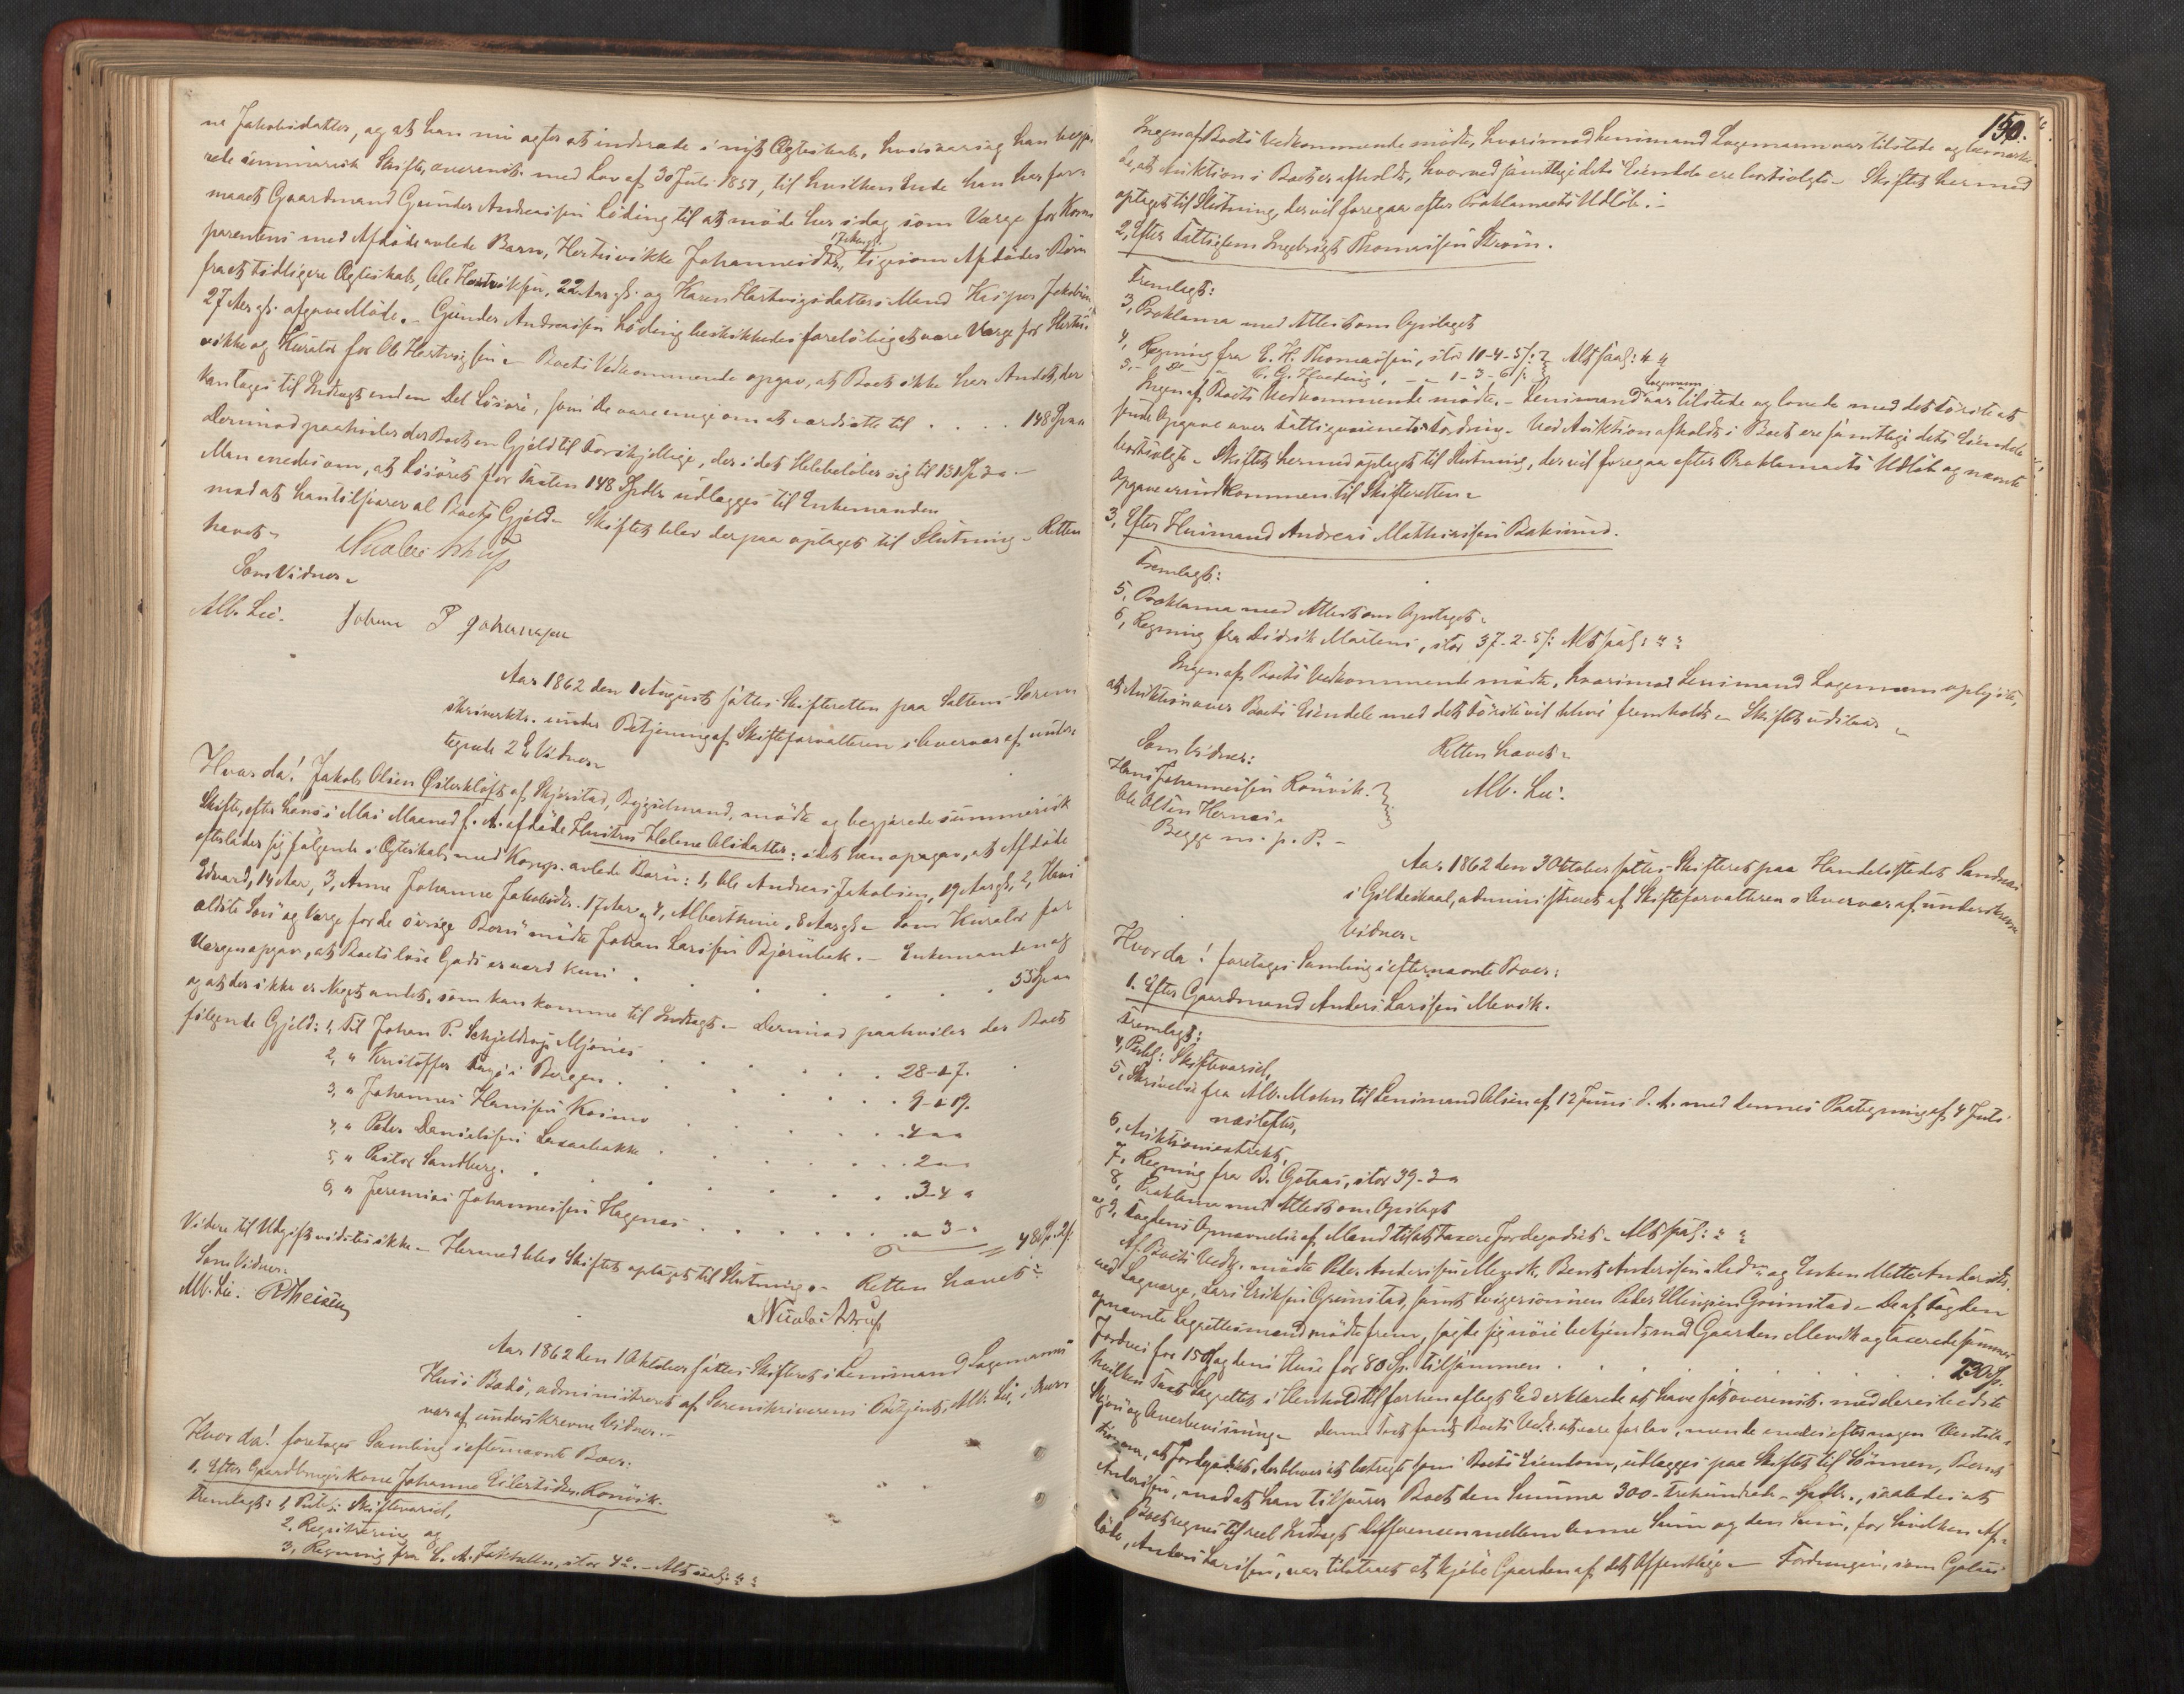 ne Jakobsdatter, og at han nu agter at indtræde i nyt Ægteskab, hvisaarsag han begjæ-
rede summarisk Skifte, overenst. med Lov af 30 Juli 1851, til hvilken Ende han har for-
maaet Gaardmand Gunder Andreassen Løding til at møde her idag som Værge for Kom-
parentens med Afdøde avlede Barn, Hertinikke Johannesdtr, ligesom Afdødes Børn
fra et tidligere Ægteskab, Ole Hartviksen, 22 Aar gl. og Karen Hartvigsdatters Mand Kasper Jakobsen
27 Aar gl. afgave Møde. - Gunder Andreassen Løding beskikkedes foreløbigt at være Værge for Hertin-
nikke og Kurator for Ole Hartvigsen - Boets Vedkommende opgav, at Boet ikke har Andet, der
kan tages til Indtægt end en Del Løsøre, som De vare enige om at værdsætte til . . . . 148 Spd "
Derimod paahviler der Boet en Gjæld til Forskjellige, der i det Hele beløber sig til 131 Sp 2 " -
Man enedes om, at Løsøret for Taxten 148 Spdlr udlægges til Enkemanden
mod at han tilsvarer al Boets Gjæld - Skiftet blev derpaa optaget til Slutning - Retten
hævet -
Nicolai Astrup
Som Vidner -
Alb. Lie. Johan P Johansen
Aar 1862 den 1 August sattes Skifteretten paa Saltens Soren-
skriverktr. under Betjening af Skifteforvalteren i Overvær af under-
tegnede 2de Vidner -
Hvor da! Jakob Olsen Østerkløft af Skjerstad, Bygselmand, mødte og begjærede summarisk
Skifte, efter hans i Mai Maaned f. A. afdøde Hustru Helene Olsdatter; idet han opgav, at Afdøde
efterlader sig følgende i Ægteskab med Komp. avlede Børn: 1, Ole Andreas Jakobsen, 19 Aar gl, 2, Hans
Edvard, 14 Aar, 3, Anne Johanne Jakobsdr. 17 Aar og 4, Alberthine, 8 Aar gl - Som Kurator for
ældste Søn og Værge for de øvrige Børn mødte Johan Larsen Bjørnbak. - Enkemanden og
Værgen opgav, at Boets løse Gods er værd kun . . . . . . . 53 Spd "
og at der ikke er Noget andet, som kan komme til Indtægt - Derimod paahviler der Boet
følgende Gjæld: 1, Til Johan P. Schjeldrup Mjønes . . . . . 28-1-7.
2, " Kristoffer i Bergen . . . . . . 9-1-19.
3, " Johannes Hansen Kosmo . . . . . 4 " "
4, " Peder Danielsen Laxaabakke . . . . . . 2 " "
5, " Pastor Sandberg . . . . . . . . 3-4 "
6, " Jeremias Johannessen Hagenes . . . . . . " 3 "
48 Sp. 2 s.
Videre til Udgift vidstes ikke - Hermed blev Skiftet optaget til Slutning. - Retten hævet -
Som Vidner -
Alb. Lie. R Theisen
Nicolai Astrup
Aar 1862 den 1 Oktober sattes Skifteret i Lensmand Lagemanns
Hus i Bodø, administreret af Sorenskriverens Betjent, Alb. Lie, i Over-
vær af underskrevne Vidner. -
Hvor da! foretoges Samling i efternævnte Boer:
1. Efter Gaardbruger Kone Johanne Eilertsdtr. Rønvik.
Fremlagt: 1, Publ: Skiftevarsel,
2, Registrering og
3, Regning fra C. A. , stor 4 " - Alt saal: " "
150.
Ingen af Boets Vedkommende mødte, hvorimod Lensmand Lagemann var tilstede og bemærke-
de, at Auktion i Boet er afholdt, hvorved samtlige dets Eiendele ere bortsolgte - Skiftet hermed
optaget til Slutning, der vil foregaa efter Proklamaets Udløb. -
2, Efter Fattiglem Ingebrigt Thomassen Strøm.
Fremlagt:
3, Proklama med Attest om Opslaget
4, Regning fra E. H. Thomassen, stor 10-4-5 s:
5, - Do - " C. G. Harding, - " 1-3-6 s: Alt saal: " "
Ingen af Boets Vedkommende mødte. - Lensmand Lagemann var tilstede og lovede med det Første at
sende Opgave over Fattigvæsenets Fordring - Ved Auktion afholdt i Boet ere samtlige dets Eiendele
bortsolgte - Skiftet hermed optaget til Slutning, der vil foregaa efter Proklamaets Udløb og nævnte
Opgave er indkommen til Skifteretten -
3, Efter Huusmand Andreas Mathiassen Baksund.
Fremlagt:
5, Proklama med Attest om Opslaget -
6, Regning fra Didrik Martens, stor 37-2-5 s: Alt saal: " "
Ingen af Boets Vedkommende mødte, hvorimod Lensmand Lagemann oplyste,
at Auktion over Boets Eiendele med det Første vil blive fremholdt - Skiftet udstaar -
Retten hævet -
Som Vidner:
Hans Johannessen Rønvik.
Ole Olsen Hernes -
Begge m. p. P. -
Alb. Lie.
Aar 1862 den 3 Oktober sattes Skifteret paa Handelsstedet Sandnæs
i Gildeskaal, administreret af Skifteforvalteren i Overvær af underskrevne
Vidner -
Hvor da! foretoges Samling i efternævnte Boer:
1. Efter Gaardmand Anders Larsen Mevik.
Fremlagt:
4, Publ: Skiftevarsel,
5, Skrivelse fra Alb. Mohn til Lensmand Olsen af 12 Juni d. A. med dennes Paategning af 4 Juli
næstefter,
6, Auktionsextrakt,
7, Regning fra B. Gotaas, stor 39-2 "
8, Proklama med Attest om Opslaget
og 9, Fogdens Opnævnelse af Mænd til at taxere Jordegodset - Alt saal: " "
Af Boets Vedk. mødte Peder Andersen Mevik, Bernt Andersen og Enken Mette Andersdtr.
ved Laugværge, Lars Eriksen Grimstad, samt Svigersønnen Peder Ellingsen Grimstad - De af Fogden
opnævnte Lagrettesmænd mødte frem, sagde sig nøie bekjendt med Gaarden Mevik og taxerede sammes
Jordvei for 150 og dens Huse for 80 Sp. tilsammen . . . . . . . . 230 Sp.
hvilken Taxt Lagrettet i Henhold til forhen aflagt Ed erklærede at have sat overenst. med deres bedste
Skjøn og Overbevisning - Denne Taxt fandt Boets Vedk. at være for lav, men de enedes efter nogen Ventila-
tion om, at Jordegodset, der blev at betragte som Boets Eiendom, udlægges paa Skiftet til Sønnen, Bernt
Andersen, mod at han tilsvarer Boet den Summa 300 - trehundrede - Spdlr., saaledes at
Boet regnes til reel Indtægt Differencen mellem denne Sum og den Sum, for hvilken Af-
døde, Anders Larsen, var tilstaaet at kjøbe Gaarden af det Offentlige - Fordringen, som Gotaas